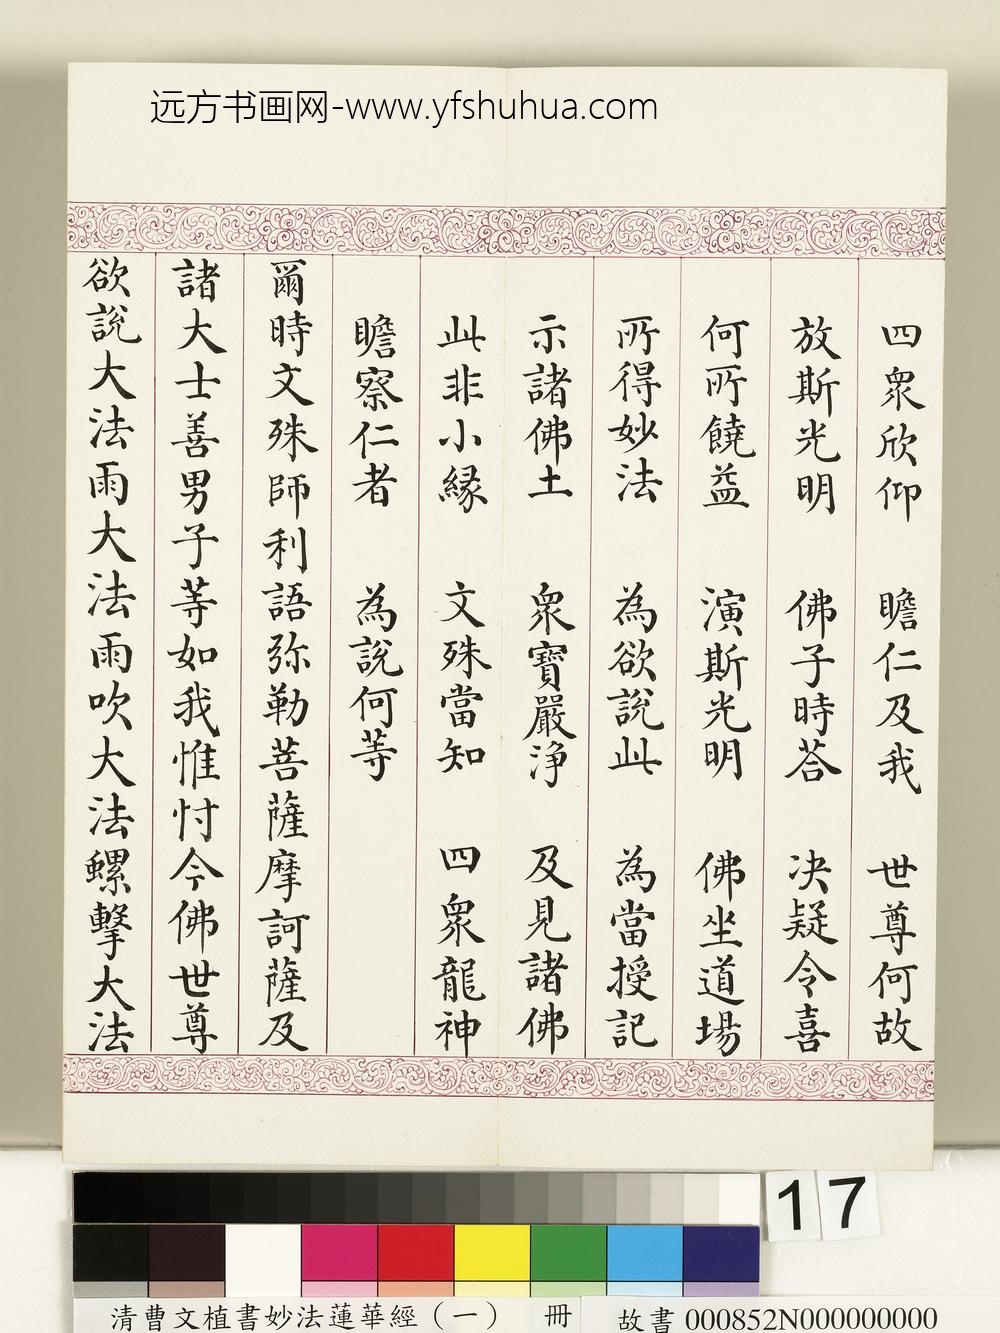 远方书画网-www.yfshuhua.com
四衆欣仰　瞻仁及我　世尊何故
放斯光明　佛子時荅　决疑令喜
何所饒益　演斯光明　佛坐道場
所得妙法　為欲說此　為當授記
示諸佛土　衆寶嚴浄　及見諸佛
此非小緣　文殊當知　四衆龍神
瞻察仁者　為說何等
爾時文殊師利語弥勒菩薩摩訶薩及
諸大士善男子等如我惟忖今佛世尊
欲說大法雨大法雨吹大法螺擊大法
17
清曹文植書妙法蓮華經（一）　冊　故書 000852N000000000